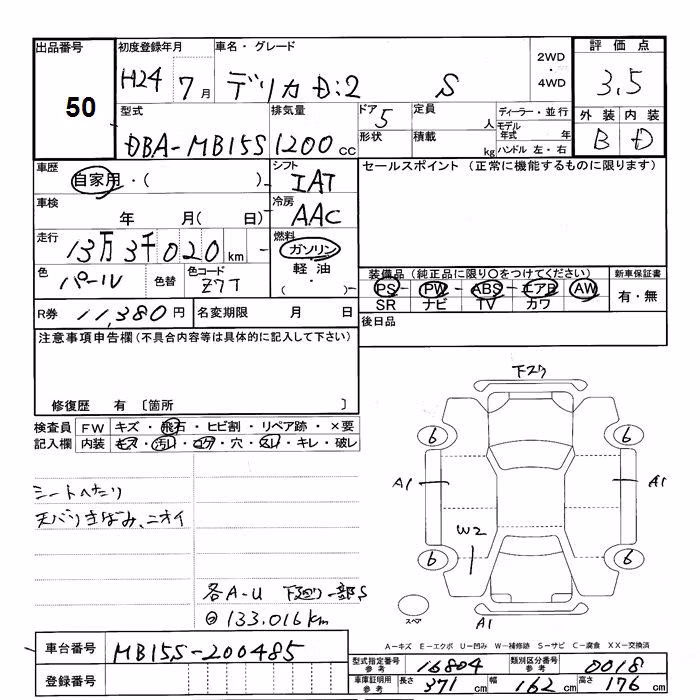 出品番号 初度登録年月 車名・グレード 2WD・4WD 評価点
50 H24 7月 デリカD:2 S 3.5
型式 排気量 ドア 5 定員 人 ディーラー・並行 外装 内装
DBA-MB15S 1200cc 形状 積載 kg モデル年式 年 ハンドル 左・右 B D
車歴 自家用・( ) シフト IAT セールスポイント (正常に機能するものに限ります)
車検 年 月( 日) 冷房 AAC
走行 13万3千020km 燃料 ガソリン
色 パール 色替 色コード Z7T 軽油・( )
装備品 (純正品に限り○をつけてください) 新車保証書
PS PW ABS エアB AW 有・無
SR ナビ TV カワ
R券 11,380円 名変期限 月 日 後日品
注意事項申告欄(不具合内容等は具体的に記入して下さい)
修復歴 有 〔箇所 〕
検査員 FW キズ・飛石・ヒビ割・リペア跡・×要
記入欄 内装 キズ・汚れ・コゲ・穴・スレ・キレ・破レ
シートへたり
天バリ黄ばみ、ニオイ
各A-U 下廻り一部S
133.016km
下スク
6 6
A1 A1
W2
6 6
スペア
A1
A-キズ E-エクボ U-凹み W-補修跡 S-サビ C-腐食 XX-交換済
車台番号 MB15S-200485
登録番号
型式指定番号 参考 16804 類別区分番号 参考 0018
車庫証明用 参考 長さ 371cm 幅 162cm 高さ 176cm